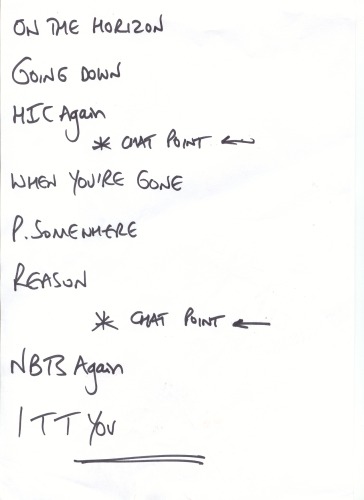 ON THE HORIZON
GOING DOWN
HIC Again
* CHAT POINT ←
WHEN YOU'RE GONE
P. SOMEWHERE
REASON
* CHAT POINT ←
NBTB Again
ITT You